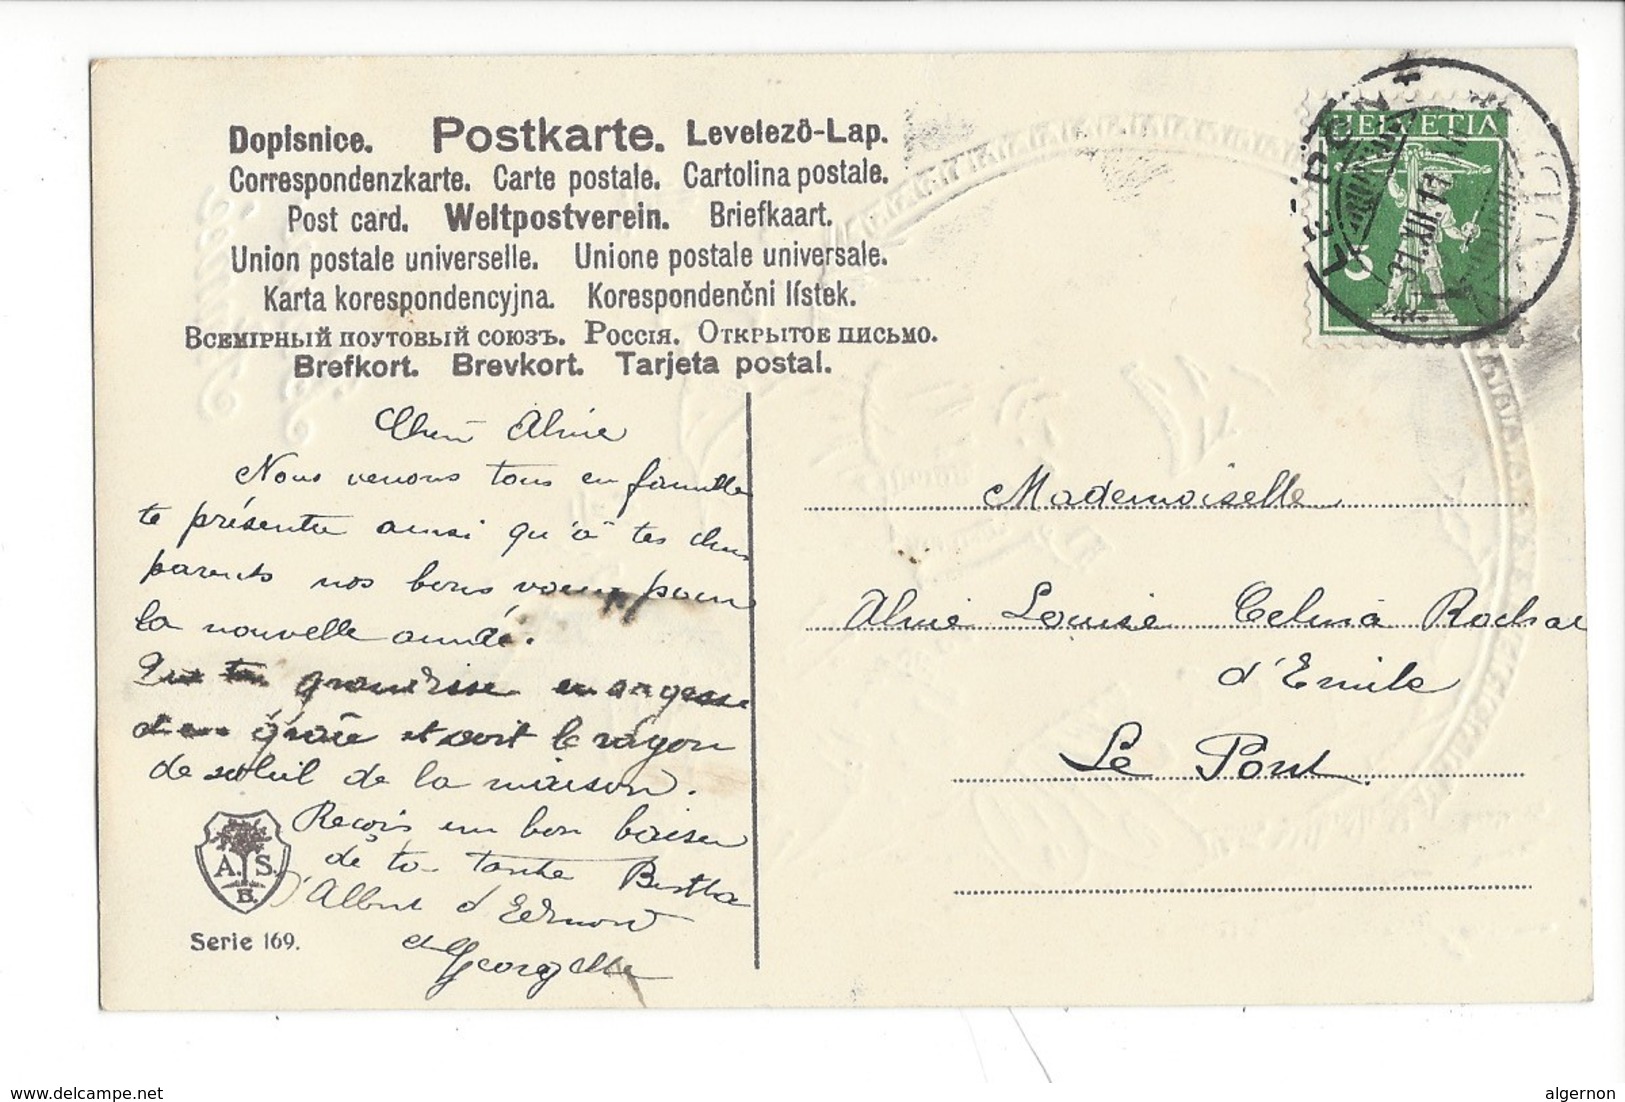 Dopisnice. Postkarte. Levelezö-Lap.
Correspondenzkarte. Carte postale. Cartolina postale.
Post card. Weltpostverein. Briefkaart.
Union postale universelle. Unione postale universale.
Karta korespondencyjna. Korespondenčni lístek.
Всемірный поутовый союзъ. Россія. Открытое письмо.
Brefkort. Brevkort. Tarjeta postal.
HELVETIA
5
LE PONT
31.XII.11
Chère Aline
Nous venons tous en famille
te présenter ainsi qu'à tes chers
parents nos bons vœux pour
la nouvelle année.
Que tu grandisse en sagesse
et en grâce et soit le rayon
de soleil de la maison.
Reçois un bon baiser
de ta tante Bertha
d'Albert d'Edmond
et Georgette
A. S.
B.
Serie 169.
Mademoiselle
Aline Louise Celina Rochat
d'Emile
Le Pont
delcampe.net
algernon